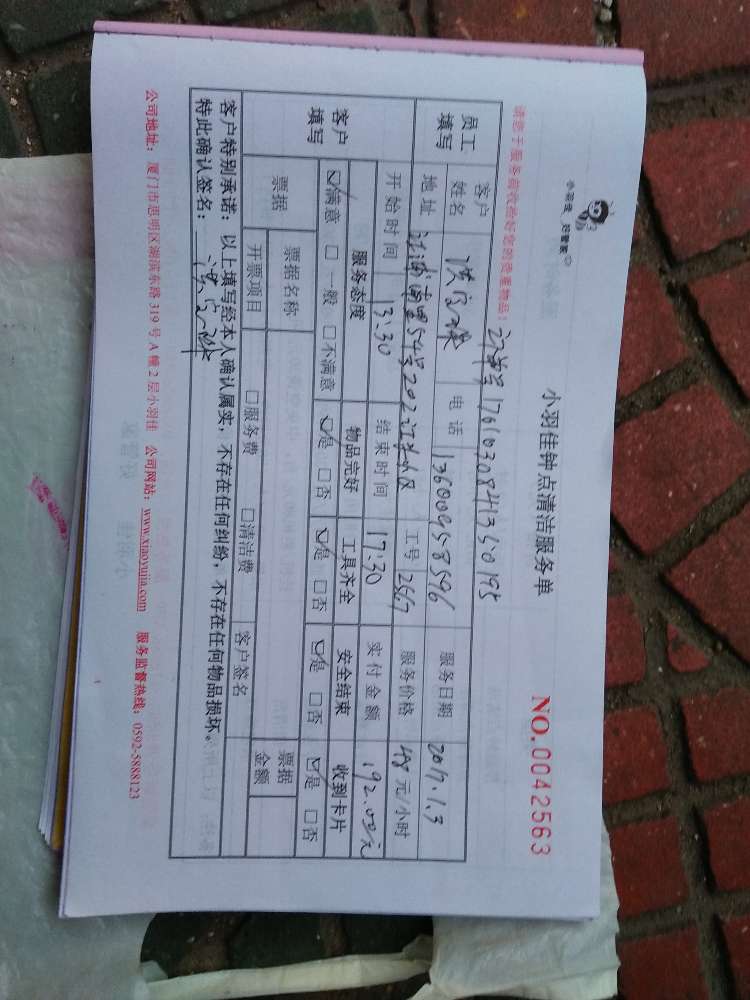 小羽佳 好管家
小羽佳钟点清洁服务单
NO.0042563
请您于服务前收拾好您的贵重物品!
1761030841350195
员工填写 客户姓名 电话 13600958596 服务日期 2017.1.3
地址 54号202 工号 2567 服务价格 48元/小时
开始时间 13:30 结束时间 17:30 实付金额 192.00元
客户填写 服务态度 物品完好 工具齐全 安全结束 收到卡片
☑满意 □一般 □不满意 ☑是 □否 ☑是 □否 ☑是 □否 ☑是 □否
票据 票据名称 票据金额
开票项目 □服务费 □清洁费 客户签名
客户特别承诺:以上填写经本人确认属实,不存在任何纠纷,不存在任何物品损坏。
特此确认签名:
公司地址:厦门市思明区湖滨东路319号A幢2层小羽佳 公司网站:www.xiaoyujia.com 服务监督热线:0592-5888123